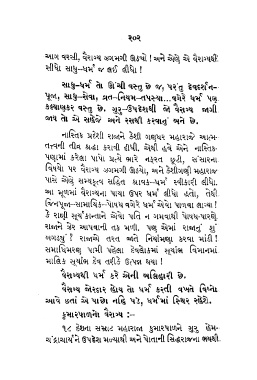 ૨૦૨
આગ વરસી, વૈરાગ્ય ઝગમગી ઊઠયો ! અને એણે એ વૈરાગ્યથી
સીધો સાધુ-ધર્મ જ લઈ લીધો !
સાધુ-ધર્મ તો ઊંચી વસ્તુ છે જ, પરંતુ દેવદર્શન-
પૂજા, સાધુ-સેવા, વ્રત-નિયમ-તપસ્યા...વગેરે ધર્મ પણ
કલ્યાણકર વસ્તુ છે. ગુરુ-ઉપદેશથી જો વૈરાગ્ય જાગી
જાય તો એ સહેજે અને રસથી કરવાનું બને છે.
નાસ્તિક પ્રદેશી રાજાને કેશી ગણધર મહારાજે આત્મ-
તત્ત્વની તીવ્ર શ્રદ્ધા કરાવી દીધી. એથી હવે એને નાસ્તિક-
પણામાં કરેલા પાપો પ્રત્યે ભારે નફરત છૂટી, સંસારના
વિષયો પર વૈરાગ્ય ઝગમગી ઊઠયો, અને કેશીગણી મહારાજ
પાસે એણે સમ્યક્ત્વ સહિત શ્રાવક-ધર્મ સ્વીકારી લીધો.
આ મૂળમાં વૈરાગ્યના પાયા ઉપર ધર્મ લીધો હતો, તેથી
જિનપૂજા-સામાયિક-પૌષધ વગેરે ધર્મ એવો પાળવા લાગ્યા !
કે રાણી સૂર્યકાન્તાને એવો પતિ ન ગમવાથી પૌષધ-પારણે
રાજાને ઝેર આપવાની તક મળી. પણ એમાં રાજાનું શું
બગડ્યું ? રાજાએ તરત જાતે નિર્યામણા કરવા માંડી !
સમાધિમરણ પામી પહેલા દેવલોકમાં સૂર્યાભ વિમાનમાં
માલિક સૂર્યાભ દેવ તરીકે ઉત્પન્ન થયા !
વૈરાગ્યથી ધર્મ કરે એની બલિહારી છે.
વૈરાગ્ય જોરદાર હોય તો ધર્મ કરતી વખતે વિઘ્નો
આવે હતાં એ પાછો નહિ પડે, ધર્મમાં સ્થિર રહેશે.
કુમારપાળનો વૈરાગ્ય :-
૧૮ દેશના સમ્રાટ મહારાજા કુમારપાળને ગુરુ હેમ-
ચંદ્રાચાર્યને ઉપદેશ મળ્યાથી અને પોતાની સિદ્ધરાજના ભયથી